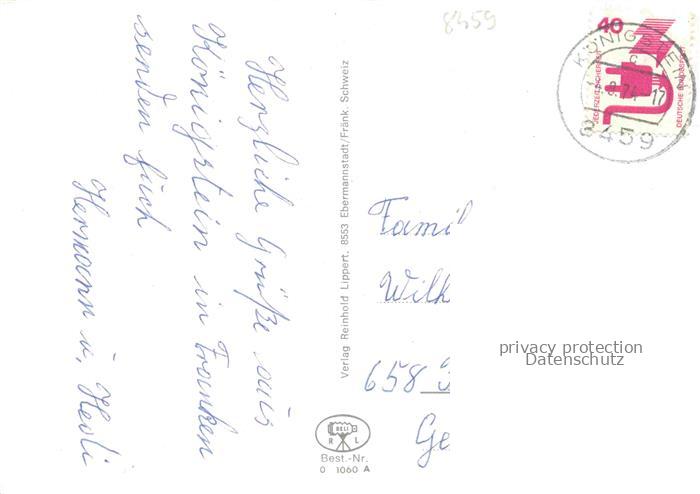 Herzliche Grüße aus
Königstein in Franken
senden Euch
Hermann u. Hedi
Verlag Reinhold Lippert, 8553 Ebermannstadt/Fränk. Schweiz
RELI
R L
Best.-Nr.
0 1060 A
8459
40
JEDERZEIT SICHERHEIT
DEUTSCHE BUNDESPOST
KÖNIGSTEIN
c
8.74-17
8459
Famil
Wilh
658
Ge
privacy protection
Datenschutz